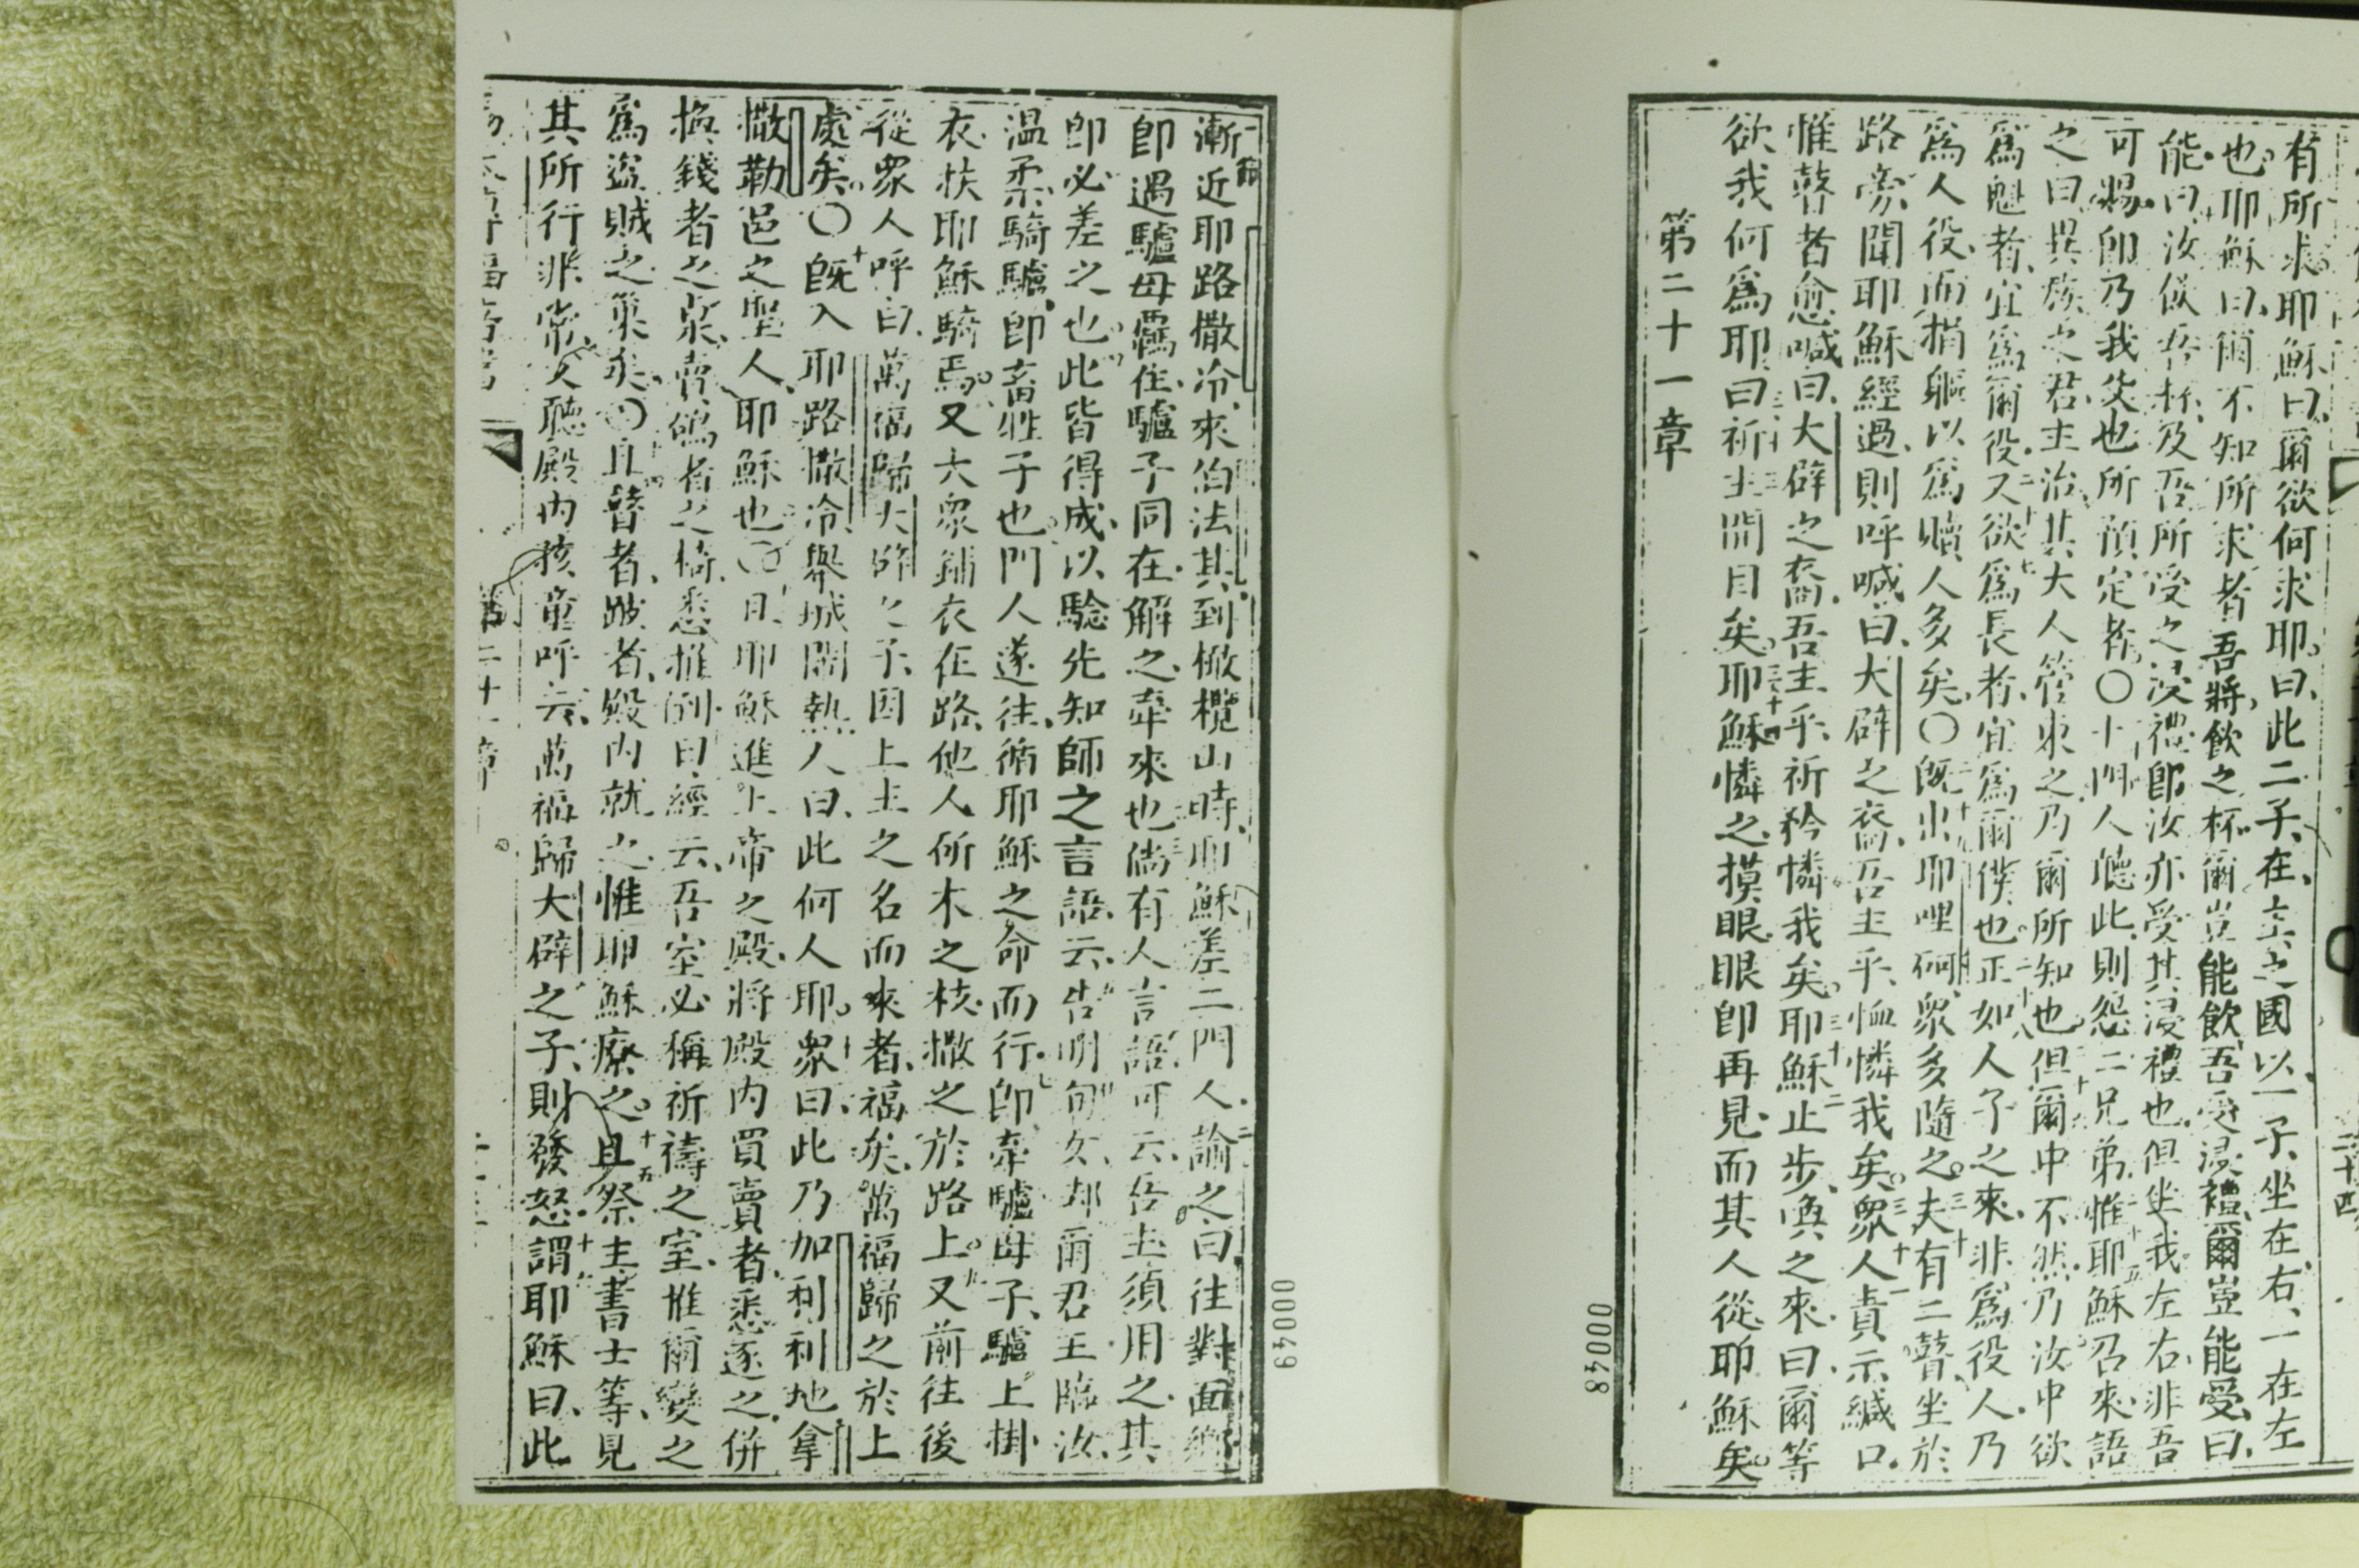 有所求耶穌曰爾欲何求耶曰此二子在主之國以一子坐在右一在左
也耶穌曰爾不知所求者吾將飲之杯爾豈能飲吾受浸禮爾豈能受曰
能曰汝飲吾杯及吾所受之浸禮卽汝亦受其浸禮也但坐我左右非吾
可賜卽乃我父也所預定者〇十門人聽此則怨二兄弟惟耶穌召來語
之曰異族之君主治其大人管束之乃爾所知也但爾中不然乃汝中欲
爲魁者宜爲爾役又欲爲長者宜爲爾僕也正如人子之來非爲役人乃
爲人役而捐軀以爲贖人多矣〇旣出耶哩㖿衆多隨之夫有二瞽坐於
路旁聞耶穌經過則呼喊曰大辟之裔吾主乎恤憐我矣衆人責示緘口
惟瞽者愈喊曰大辟之裔吾主乎祈矜憐我矣耶穌止步喚之來曰爾等
欲我何爲耶曰祈主開目矣耶穌憐之摸眼眼卽再見而其人從耶穌矣
第二十一章
00048
漸近耶路撒冷來伯法其到橄欖山時耶穌差二門人論之曰往對面鄉
卽遇驢母覊住驢子同在解之牽來也倘有人言語可云吾主須用之其
卽必差之也此皆得成以騐先知師之言語云告明旬女却爾君王臨汝
温柔騎驢卽畜牲子也門人遂往循耶穌之命而行卽牽驢母子驢上掛
衣扶耶穌騎焉又大衆鋪衣在路他人所木之枝撒之於路上又前往後
從衆人呼曰萬福歸大辟之子因上主之名而來者福矣萬福歸之於上
處矣〇旣入耶路撒冷舉城鬧熱人曰此何人耶衆曰此乃加利利地拿
撒勒邑之聖人耶穌也〇且耶穌進上帝之殿將殿內買賣者悉逐之併
換錢者之棹賣鴿者之椅悉推倒曰經云吾室必稱祈禱之室惟爾變之
爲盜賊之巢矣〇且瞽者跛者殿內就之惟耶穌療之且祭主書士等見
其所行非常又聽殿內孩童呼云萬福歸大辟之子則發怒謂耶穌曰此
00049